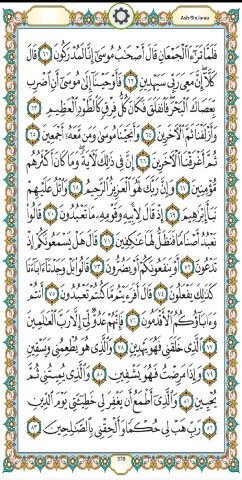 Ash-Shu'araa
فَلَمَّا تَرَٰٓءَا ٱلْجَمْعَانِ قَالَ أَصْحَٰبُ مُوسَىٰٓ إِنَّا لَمُدْرَكُونَ ٦١ قَالَ
كَلَّآ إِنَّ مَعِىَ رَبِّى سَيَهْدِينِ ٦٢ فَأَوْحَيْنَآ إِلَىٰ مُوسَىٰٓ أَنِ ٱضْرِب
بِّعَصَاكَ ٱلْبَحْرَ فَٱنفَلَقَ فَكَانَ كُلُّ فِرْقٍ كَٱلطَّوْدِ ٱلْعَظِيمِ ٦٣
وَأَزْلَفْنَا ثَمَّ ٱلْءَاخَرِينَ ٦٤ وَأَنجَيْنَا مُوسَىٰ وَمَن مَّعَهُۥٓ أَجْمَعِينَ ٦٥
ثُمَّ أَغْرَقْنَا ٱلْءَاخَرِينَ ٦٦ إِنَّ فِى ذَٰلِكَ لَءَايَةً وَمَا كَانَ أَكْثَرُهُم
مُّؤْمِنِينَ ٦٧ وَإِنَّ رَبَّكَ لَهُوَ ٱلْعَزِيزُ ٱلرَّحِيمُ ٦٨ وَٱتْلُ عَلَيْهِمْ
نَبَأَ إِبْرَٰهِيمَ ٦٩ إِذْ قَالَ لِأَبِيهِ وَقَوْمِهِۦ مَا تَعْبُدُونَ ٧٠ قَالُوا۟
نَعْبُدُ أَصْنَامًا فَنَظَلُّ لَهَا عَٰكِفِينَ ٧١ قَالَ هَلْ يَسْمَعُونَكُمْ إِذْ
تَدْعُونَ ٧٢ أَوْ يَنفَعُونَكُمْ أَوْ يَضُرُّونَ ٧٣ قَالُوا۟ بَلْ وَجَدْنَآ ءَابَآءَنَا
كَذَٰلِكَ يَفْعَلُونَ ٧٤ قَالَ أَفَرَءَيْتُم مَّا كُنتُمْ تَعْبُدُونَ ٧٥ أَنتُمْ
وَءَابَآؤُكُمُ ٱلْأَقْدَمُونَ ٧٦ فَإِنَّهُمْ عَدُوٌّ لِّىٓ إِلَّا رَبَّ ٱلْعَٰلَمِينَ
٧٧ ٱلَّذِى خَلَقَنِى فَهُوَ يَهْدِينِ ٧٨ وَٱلَّذِى هُوَ يُطْعِمُنِى وَيَسْقِينِ
٧٩ وَإِذَا مَرِضْتُ فَهُوَ يَشْفِينِ ٨٠ وَٱلَّذِى يُمِيتُنِى ثُمَّ
يُحْيِينِ ٨١ وَٱلَّذِىٓ أَطْمَعُ أَن يَغْفِرَ لِى خَطِيٓـَٔتِى يَوْمَ ٱلدِّينِ
٨٢ رَبِّ هَبْ لِى حُكْمًا وَأَلْحِقْنِى بِٱلصَّٰلِحِينَ ٨٣
370